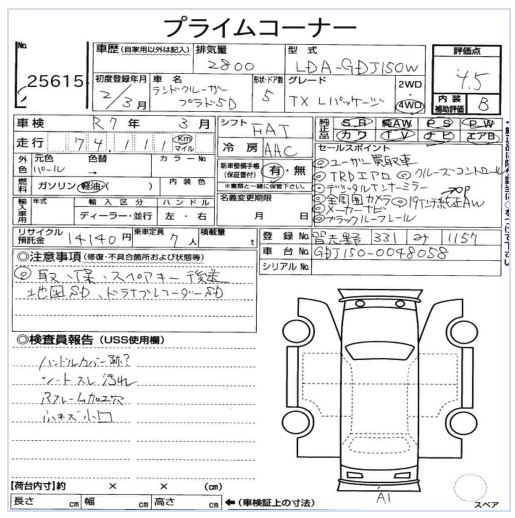 プライムコーナー
No.
25615
車歴 (自家用以外は記入)
排気量
2800
型式
LDA-GDJ150W
評価点
4.5
初度登録年月
2/3月
車名
ランドクルーザー
プラド5D
形状・ドア数
5
グレード
TX Lパッケージ
2WD
4WD
内装
補助評価
B
車検 R7年 3月
シフト
FAT
純正品
SR 純AW PS PW
カワ TV ナビ エアB
走行 74,111 Km マイル
冷房
AAC
セールスポイント
①ユーザー買取車
②TRDエアロ
⑥クルーズコントロール
③デジタルインナーミラー
④全周囲カメラ
⑦19インチ純正AW
⑤メーカーナビ
⑧ブラックルーフレール
外色
元色
パール
色替
カラーNo
新車整備手帳
(保証書付)
有・無
※書類と一緒に保管して下さい。
燃料
ガソリン・軽油・( )
内装色
名義変更期限
月 日
輸入車用
年式
輸入区分
ディーラー・並行
ハンドル
左・右
リサイクル預託金 14140円
乗車定員 7人
積載量 t
登録No 習志野 331 み 1157
車台No GDJ150-0048058
シリアルNo
◎注意事項 (修復・不具合箇所および状態等)
②取、保、スペアキー後送
地図SD、ドライブレコーダーSD
◎検査員報告 (USS使用欄)
ハンドルカバー跡?
シートスレ汚れ
Rフレーム加工穴
小キズ小凹
【荷台内寸】約 × × (cm)
長さ cm 幅 cm 高さ cm
←(車検証上の寸法)
A1
スペア